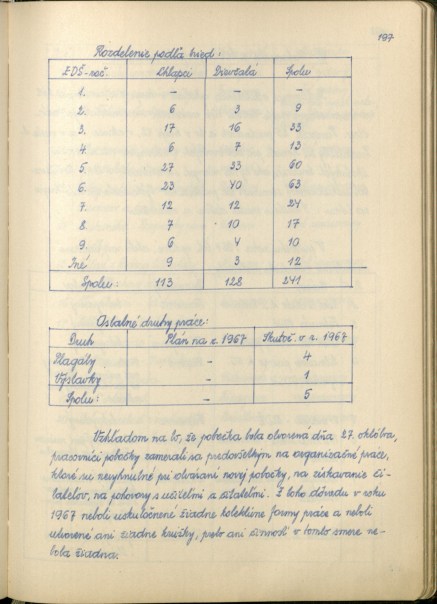 197
Rozdelenie podľa tried:
ZDŠ-roč. Chlapci Dievčatá Spolu
1. - - -
2. 6 3 9
3. 17 16 33
4. 6 7 13
5. 27 33 60
6. 23 40 63
7. 12 12 24
8. 7 10 17
9. 6 4 10
Iné 9 3 12
Spolu: 113 128 241
Ostatné druhy práce:
Druh Plán na r. 1967 Skutoč. v r. 1967
Plagáty - 4
Výstavky - 1
Spolu: - 5
Vzhľadom na to, že pobočka bola otvorená dňa 27. októbra,
pracovníci pobočky zamerali sa predovšetkým na organizačné práce,
ktoré su nevyhnutné pri otvárani novej pobočky, na získavanie či-
tateľov, na pohovory s učiteľmi a čitateľmi. Z toho dôvodu v roku
1967 neboli uskutočnené žiadne kolektívne formy práce a neboli
utvorené ani žiadne krúžky, preto ani činnosť v tomto smere ne-
bola žiadna.